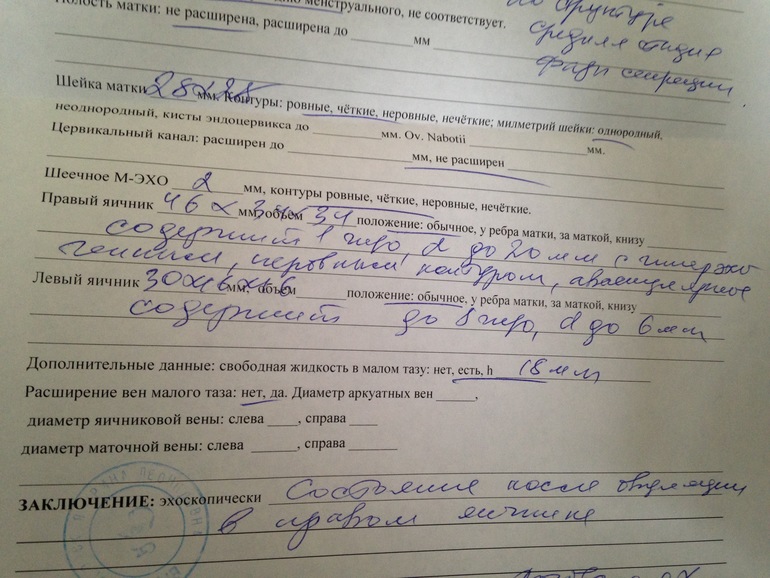 менструального, не соответствует.
Полость матки: не расширена, расширена до мм
по структуре
средняя стадия
фазы секреции.
Шейка матки 28х28 мм. Контуры: ровные, чёткие, неровные, нечёткие; милметрий шейки: однородный,
неоднородный, кисты эндоцервикса до мм. Ov. Nabotii мм.
Цервикальный канал: расширен до мм, не расширен
Шеечное М-ЭХО 2 мм, контуры ровные, чёткие, неровные, нечёткие.
Правый яичник 46 х мм, объем 34 положение: обычное, у ребра матки, за маткой, книзу
содержит 1 гиро, d до 20 мм с гиперэхо
генным, неровным контуром, аваскулярное
Левый яичник 30х16х16 мм, объем положение: обычное, у ребра матки, за маткой, книзу
содержит до 8 гиро, d до 6 мм
Дополнительные данные: свободная жидкость в малом тазу: нет, есть, h 18 мм
Расширение вен малого таза: нет, да. Диаметр аркуатных вен ,
диаметр яичниковой вены: слева , справа
диаметр маточной вены: слева , справа
ЗАКЛЮЧЕНИЕ: эхоскопически Состояние после овуляции
в правом яичнике